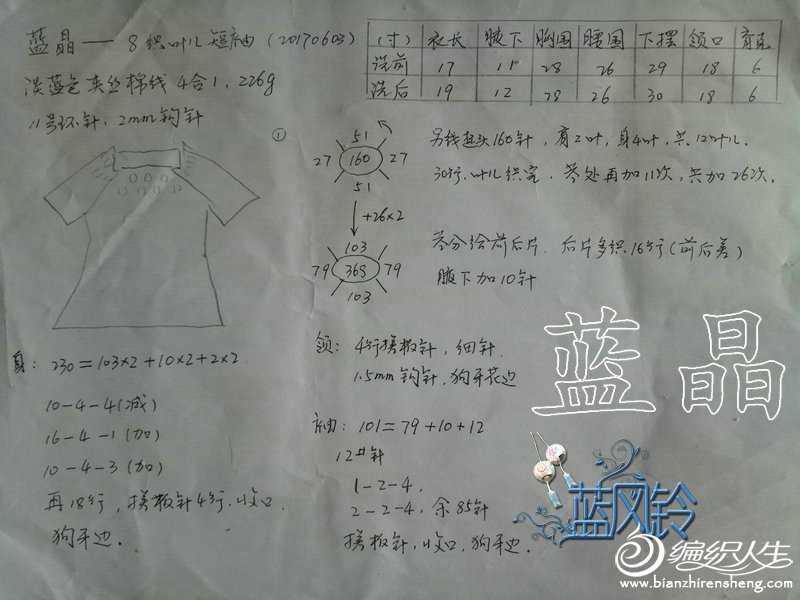 蓝晶——8织叶儿短袖(20170603)
淡蓝色夹丝棉线4合1,226g
11号环针,2mm钩针
(寸) 衣长 腋下 胸围 腰围 下摆 领口 育克
洗前 17 11 28 26 29 18 6
洗后 19 12 28 26 30 18 6
①
51
27 160 27
51
+26×2
103
79 368 79
103
另线起头160针,肩2叶,身4叶,共12叶儿.
30行.叶儿织完,茎处再加11次,共加26次.
茎分给前后片.后片多织16行(前后差)
腋下加10针
领:4行搓板针,细针
1.5mm钩针,狗牙花边
身:230=103×2+10×2+2×2
10-4-4(减)
16-4-1(加)
10-4-3(加)
再18行,搓板针4行,收口.
狗牙边.
袖:101=79+10+12
12#针
1-2-4,
2-2-4,余85针
搓板针,收口,狗牙边.
蓝晶
蓝风铃
编织人生
www.bianzhirensheng.com